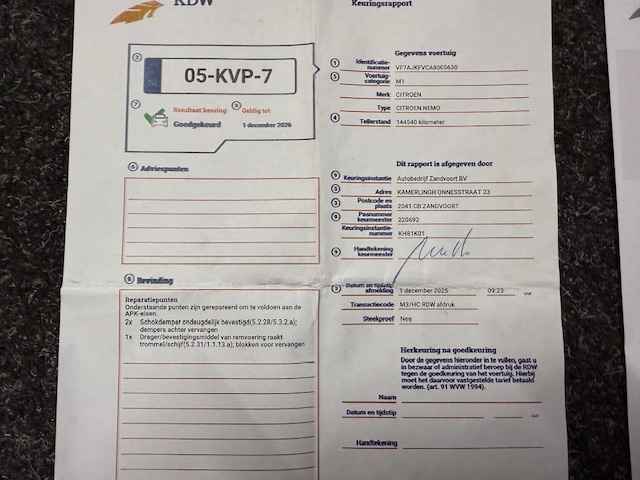 RDW
Keuringsrapport
05-KVP-7
Resultaat keuring
Geldig tot
Goedgekeurd
1 december 2026
Gegevens voertuig
Identificatie-
nummer
Voertuig-
categorie M1
Merk CITROEN
Type CITROEN NEMO
Tellerstand 144540 kilometer
Adviespunten
Dit rapport is afgegeven door
Keuringsinstantie Autobedrijf Zandvoort BV
Adres KAMERLINGH ONNESSTRAAT 23
Postcode en
plaats 2041 CB ZANDVOORT
Pasnummer
keurmeester 220692
Keuringsinstantie-
nummer KH81K01
Handtekening
keurmeester
Datum en tijdstip
afmelding 1 december 2025 09:23 uur
Transactiecode M3/HC RDW afdruk
Steekproef Nee
Bevinding
Reparatiepunten
Onderstaande punten zijn gerepareerd om te voldoen aan de
APK-eisen.
2x Schokdemper ondeugdelijk bevestigd(5.2.28/5.3.2.a);
dempers achter vervangen
1x Drager/bevestigingsmiddel van remvoering raakt
trommel/schijf(5.2.31/1.1.13.a), blokken voor vervangen
Herkeuring na goedkeuring
Door de gegevens hieronder in te vullen, gaat u
in bezwaar of administratief beroep bij de RDW
tegen de goedkeuring van het voertuig. Hierbij
moet het daarvoor vastgestelde tarief betaald
worden. (art. 91 WVW 1994).
Naam
Datum en tijdstip uur
Handtekening